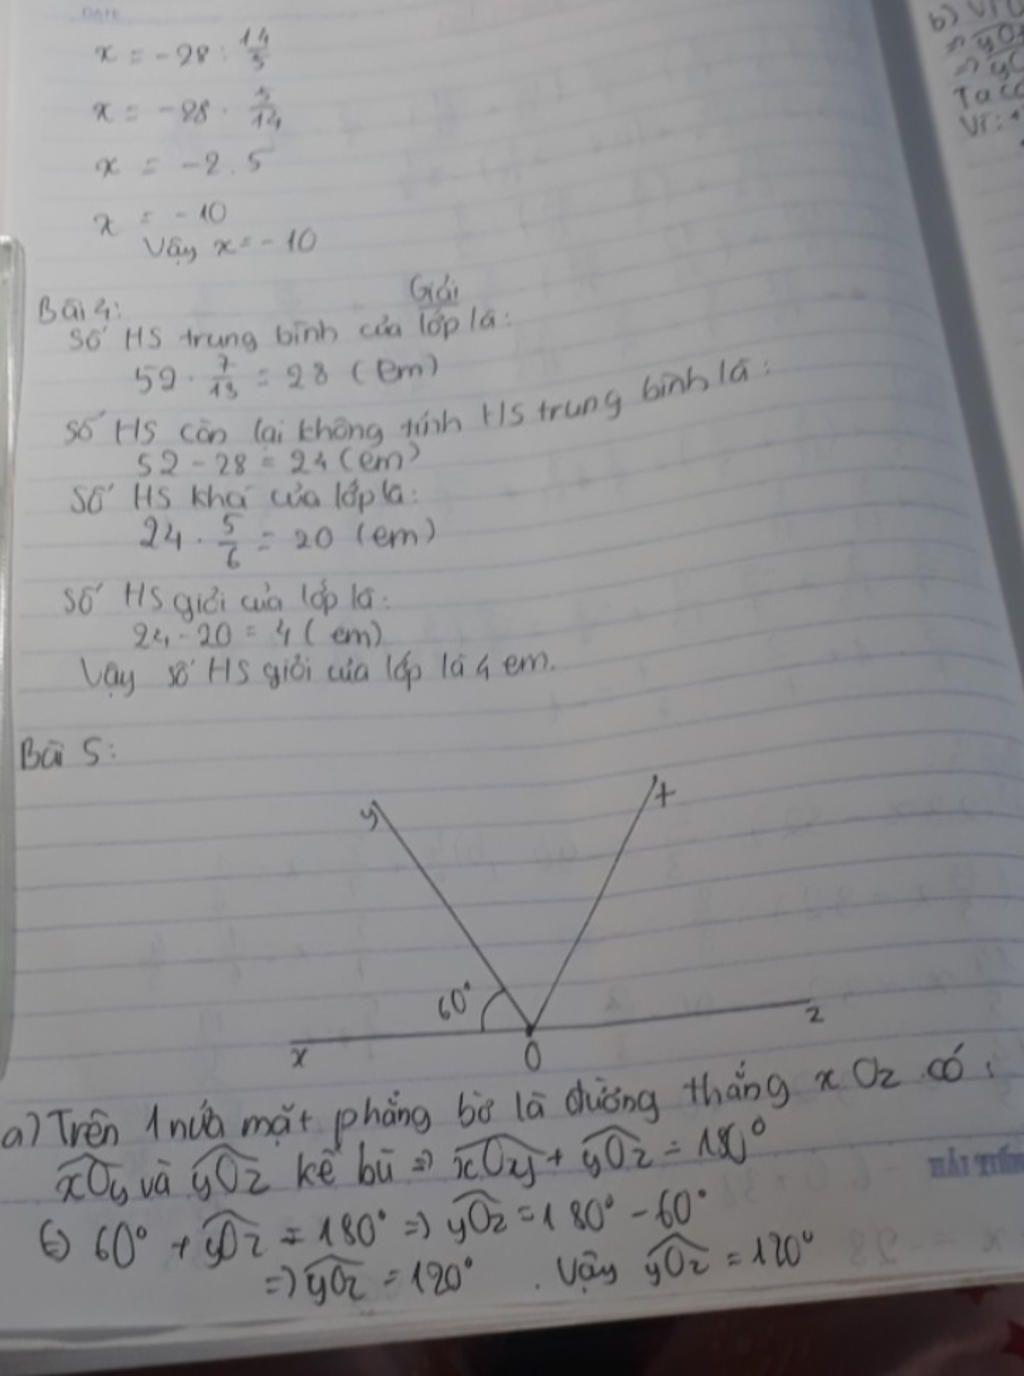 x = -28 : 14/5
x = -28 . 5/14
x = -2.5
x = -10
Vậy x = -10
Bài 4:
Giải
Số HS trung bình của lớp là:
52 . 7/13 = 28 (em)
Số HS còn lại không tính HS trung bình là:
52 - 28 = 24 (em)
Số HS khá của lớp là:
24 . 5/6 = 20 (em)
Số HS giỏi của lớp là:
24 - 20 = 4 (em)
Vậy số HS giỏi của lớp là 4 em.
Bài 5:
y
t
60°
x
O
z
a) Trên 1 nửa mặt phẳng bờ là đường thẳng xOz có:
xOy và yOz kề bù => xOy + yOz = 180°
60° + yOz = 180° => yOz = 180° - 60°
=> yOz = 120° . Vậy yOz = 120°
b) Vì
=> yOz
Ta có
Vì: